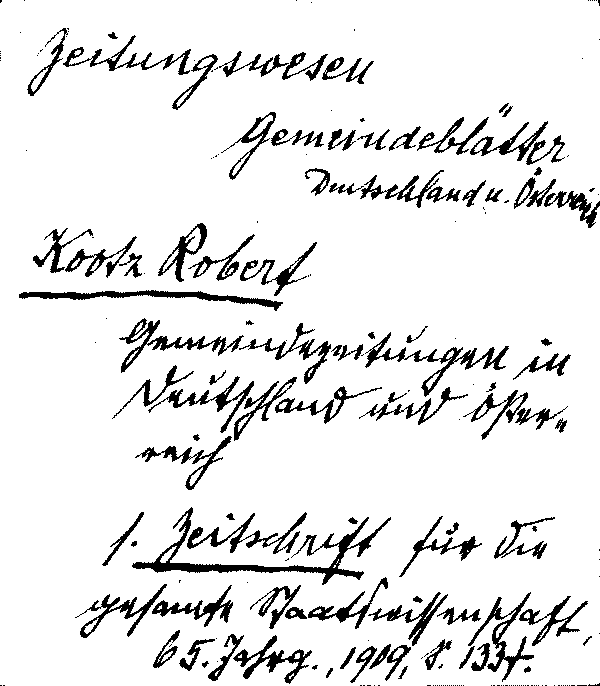 Zeitungswesen
Gemeindeblätter
Deutschland u. Österreich
Kootz Robert
Gemeindezeitungen in
Deutschland und Öster-
reich
s. Zeitschrift für die
gesamte Staatswissenschaft,
65. Jahrg., 1909, S. 133f.